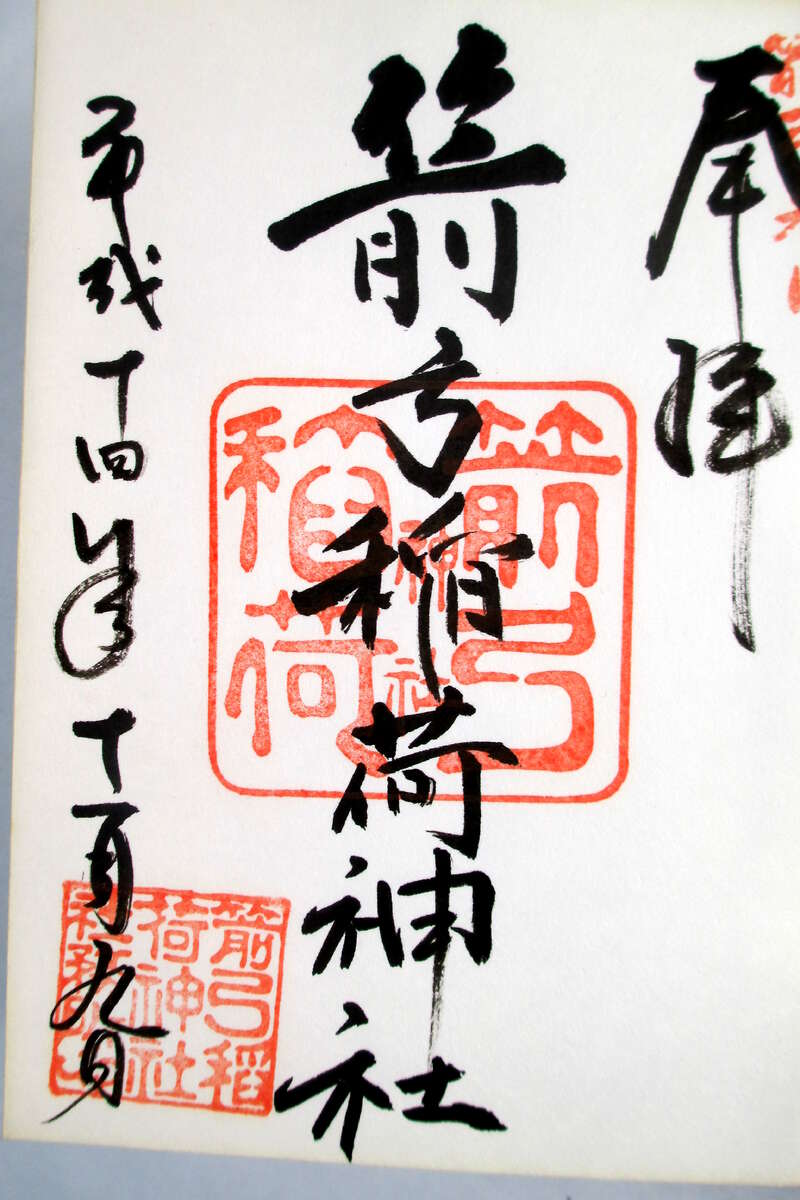 奉拝
箭弓稲荷神社
平成十四年十一月九日
箭弓
稲荷
神社
箭弓稲
荷神社